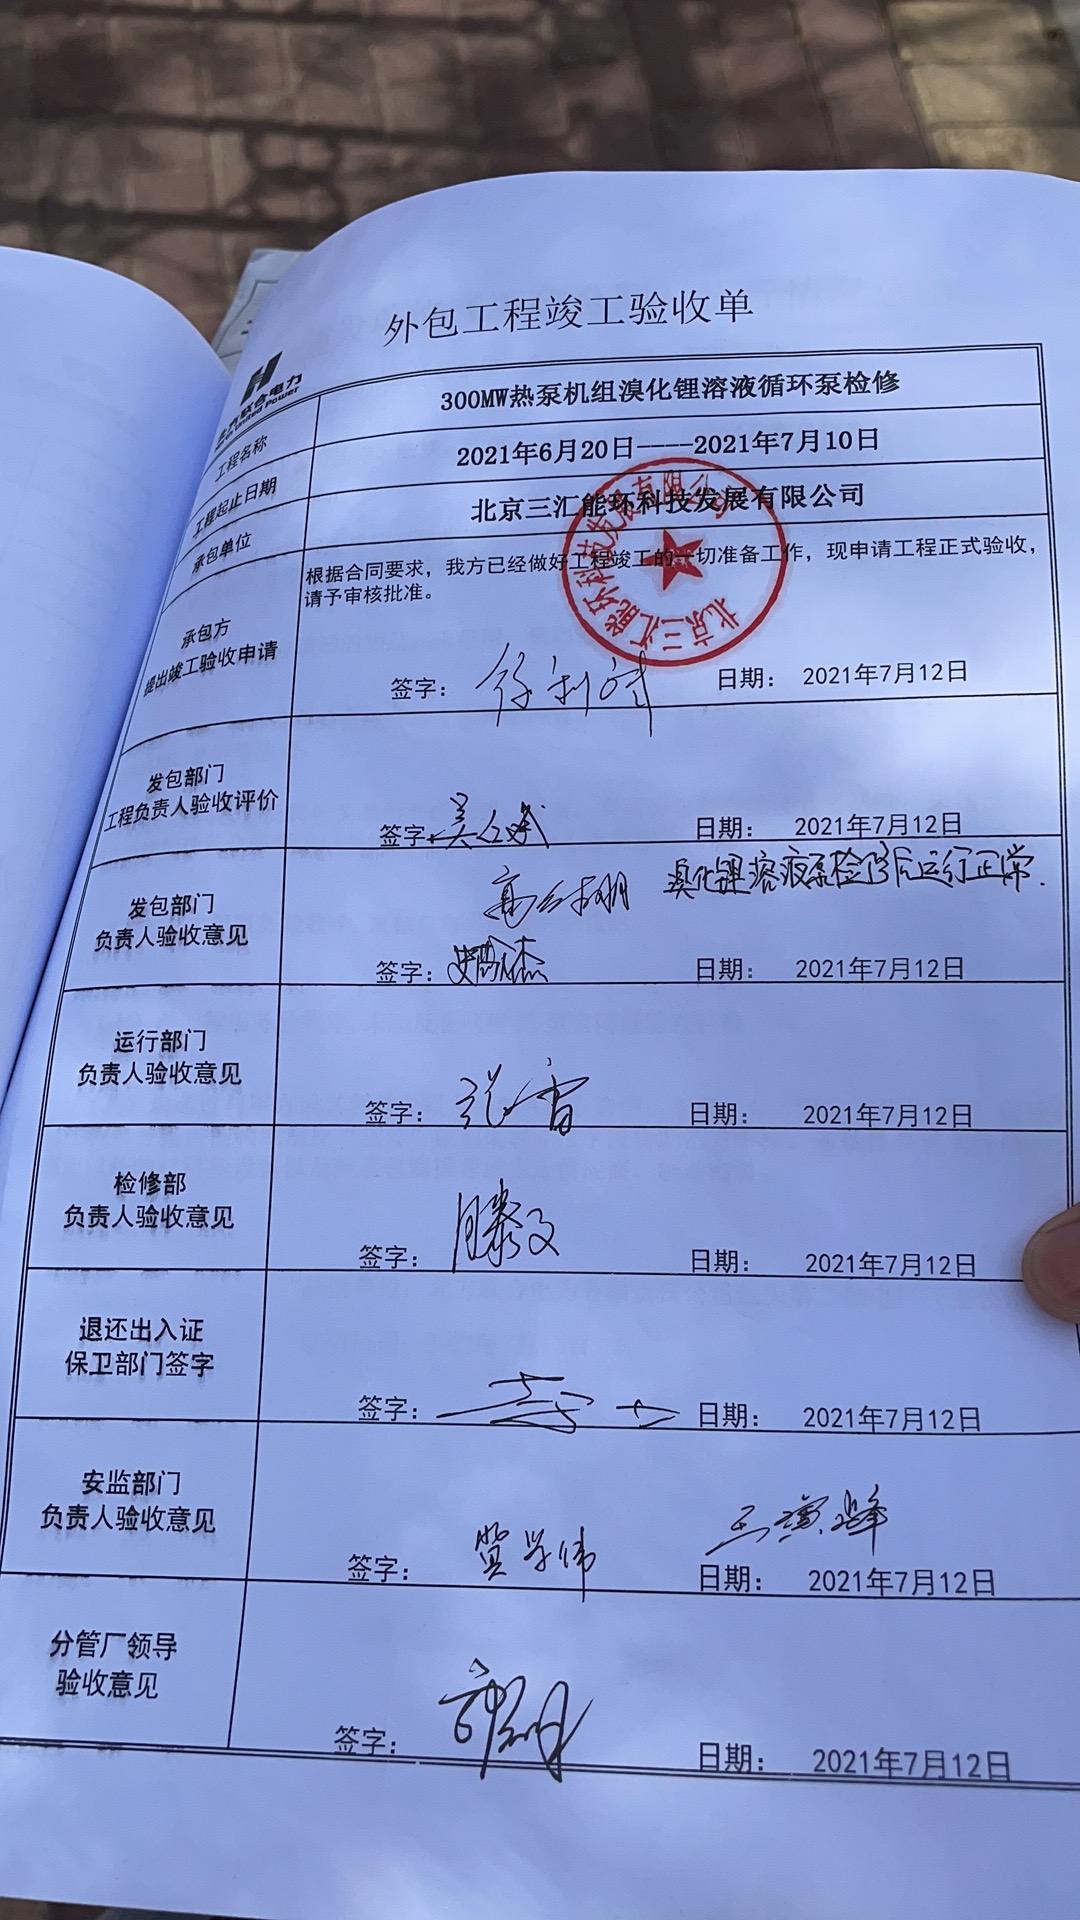 外包工程竣工验收单
工程名称
300MW热泵机组溴化锂溶液循环泵检修
工程起止日期
2021年6月20日----2021年7月10日
承包单位
北京三汇能环科技发展有限公司
承包方
提出竣工验收申请
根据合同要求，我方已经做好工程竣工的一切准备工作，现申请工程正式验收，
请予审核批准。
北京三汇能环科技发展有限公司
签字：
日期： 2021年7月12日
发包部门
工程负责人验收评价
签字：
日期： 2021年7月12日
发包部门
负责人验收意见
溴化锂溶液泵检修后运行正常.
签字：
日期： 2021年7月12日
运行部门
负责人验收意见
签字：
日期： 2021年7月12日
检修部
负责人验收意见
签字：
日期： 2021年7月12日
退还出入证
保卫部门签字
签字：
日期： 2021年7月12日
安监部门
负责人验收意见
签字：
日期： 2021年7月12日
分管厂领导
验收意见
签字：
日期： 2021年7月12日